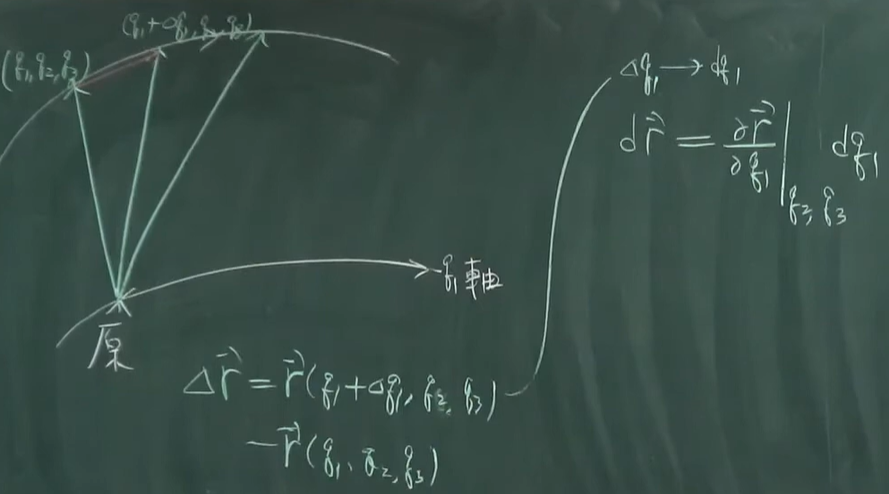 (q₁+Δq₁, q₂, q₃)
(q₁, q₂, q₃)
q₁ 軸
原
Δr⃗ = r⃗(q₁+Δq₁, q₂, q₃)
−r⃗(q₁, q₂, q₃)
Δq₁ → dq₁
dr⃗ = ∂r⃗/∂q₁ |q₂, q₃ dq₁